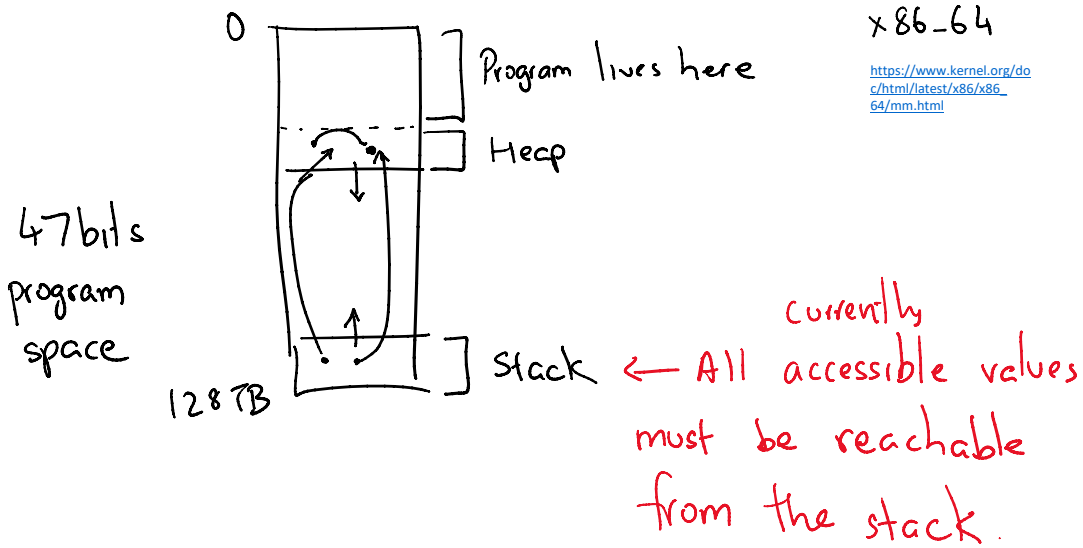 0
Program lives here
x86_64
https://www.kernel.org/do
c/html/latest/x86/x86_
64/mm.html
Heap
47bits
program
space
128TB
Stack
currently
← All accessible values
must be reachable
from the stack.